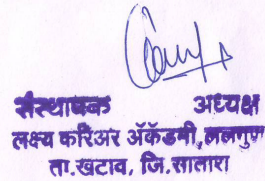 संस्थापक अध्यक्ष
लक्ष्य करिअर ॲकॅडमी, ललगुण
ता.खटाव, जि.सातारा